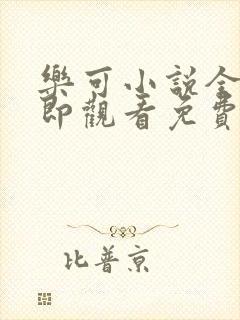 樂可小說全
即觀看免費
比普京